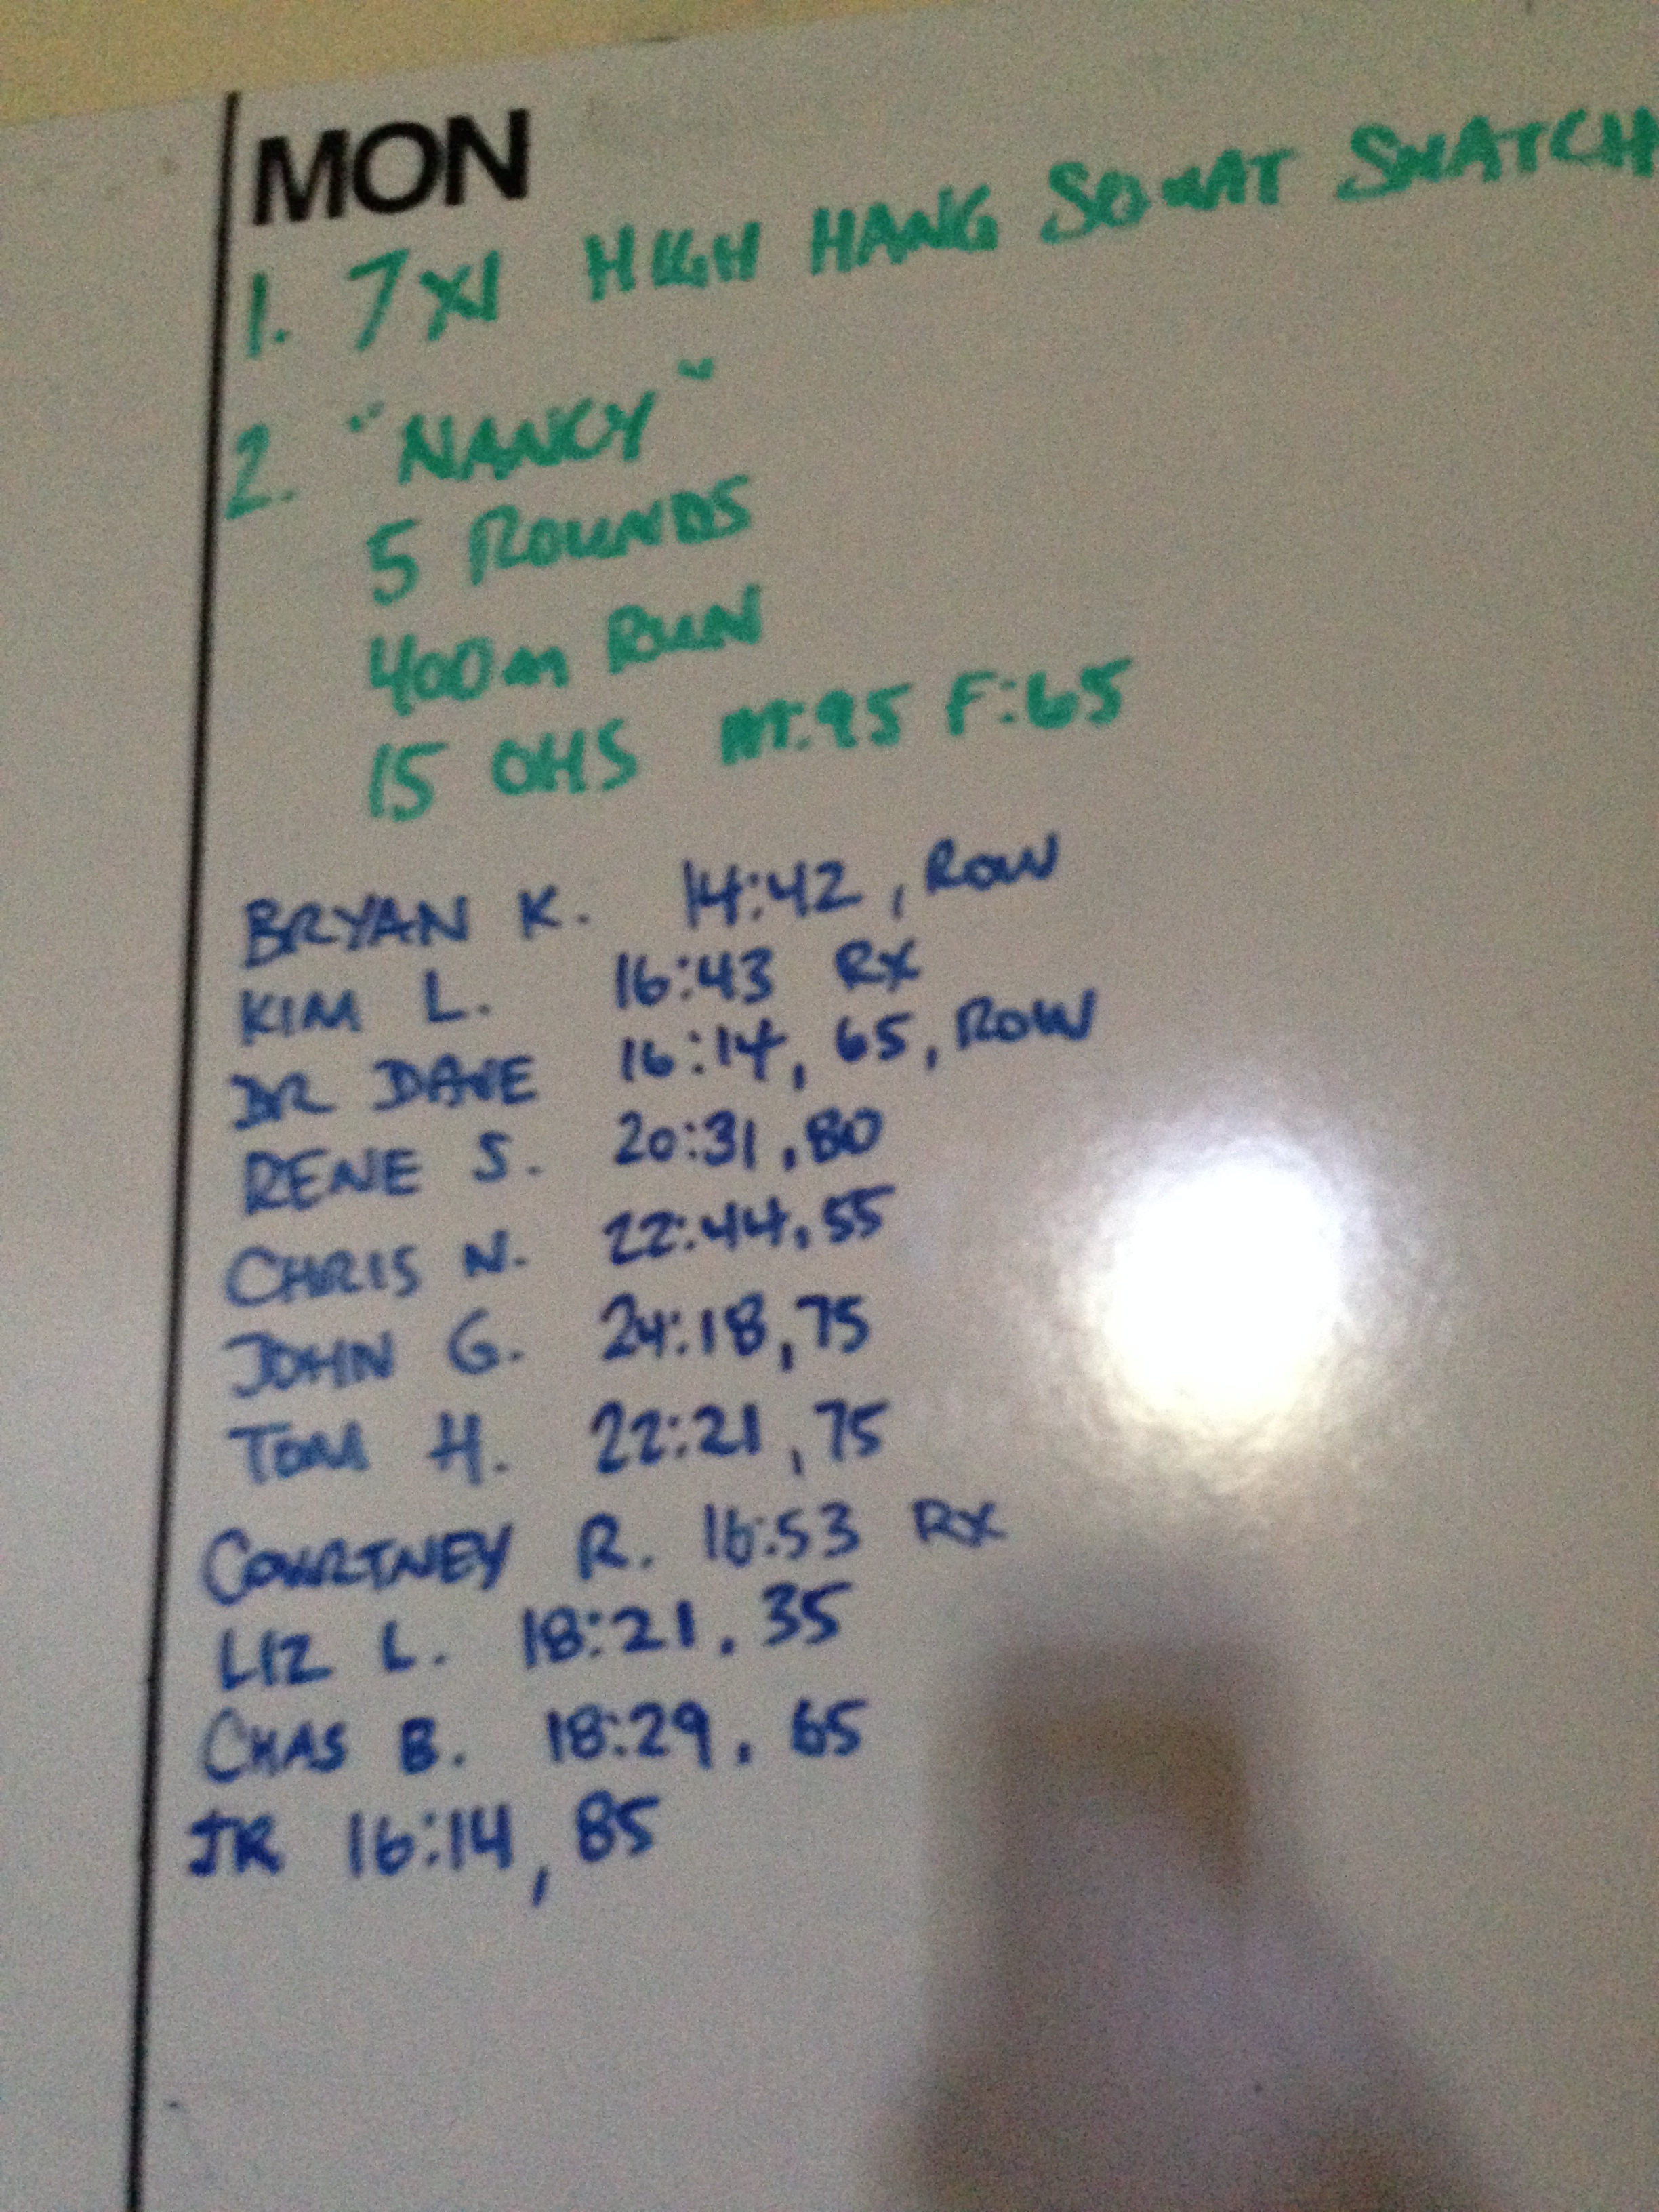 MON
1. 7X1 HIGH HANG SQUAT SNATCH
2. "NANCY"
5 ROUNDS
400m RUN
15 OHS M:95 F:65
BRYAN K. 14:42, ROW
KIM L. 16:43 RX
DR DAVE 16:14, 65, ROW
RENE S. 20:31, 80
CHRIS N. 22:44, 55
JOHN G. 24:18, 75
TOM H. 22:21, 75
COURTNEY R. 16:53 RX
LIZ L. 18:21, 35
CHAS B. 18:29, 65
JR 16:14, 85